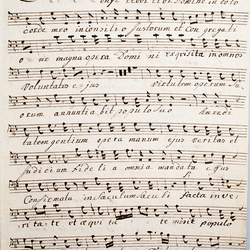 Confitebor tibi Domine in toto
corde meo in consilio justorum et Con gregati
o ne magna opera Domi ni exquisita in omnes
Voluntates ejus Virtutem operum Su
orum annunciabit populo suo
tatem gentium opera manuum ejus veritas et
judicium Fidelia omnia mandata ejus
Confirmata in saeculum saeculi facta in ve
ritate et aequita te populo